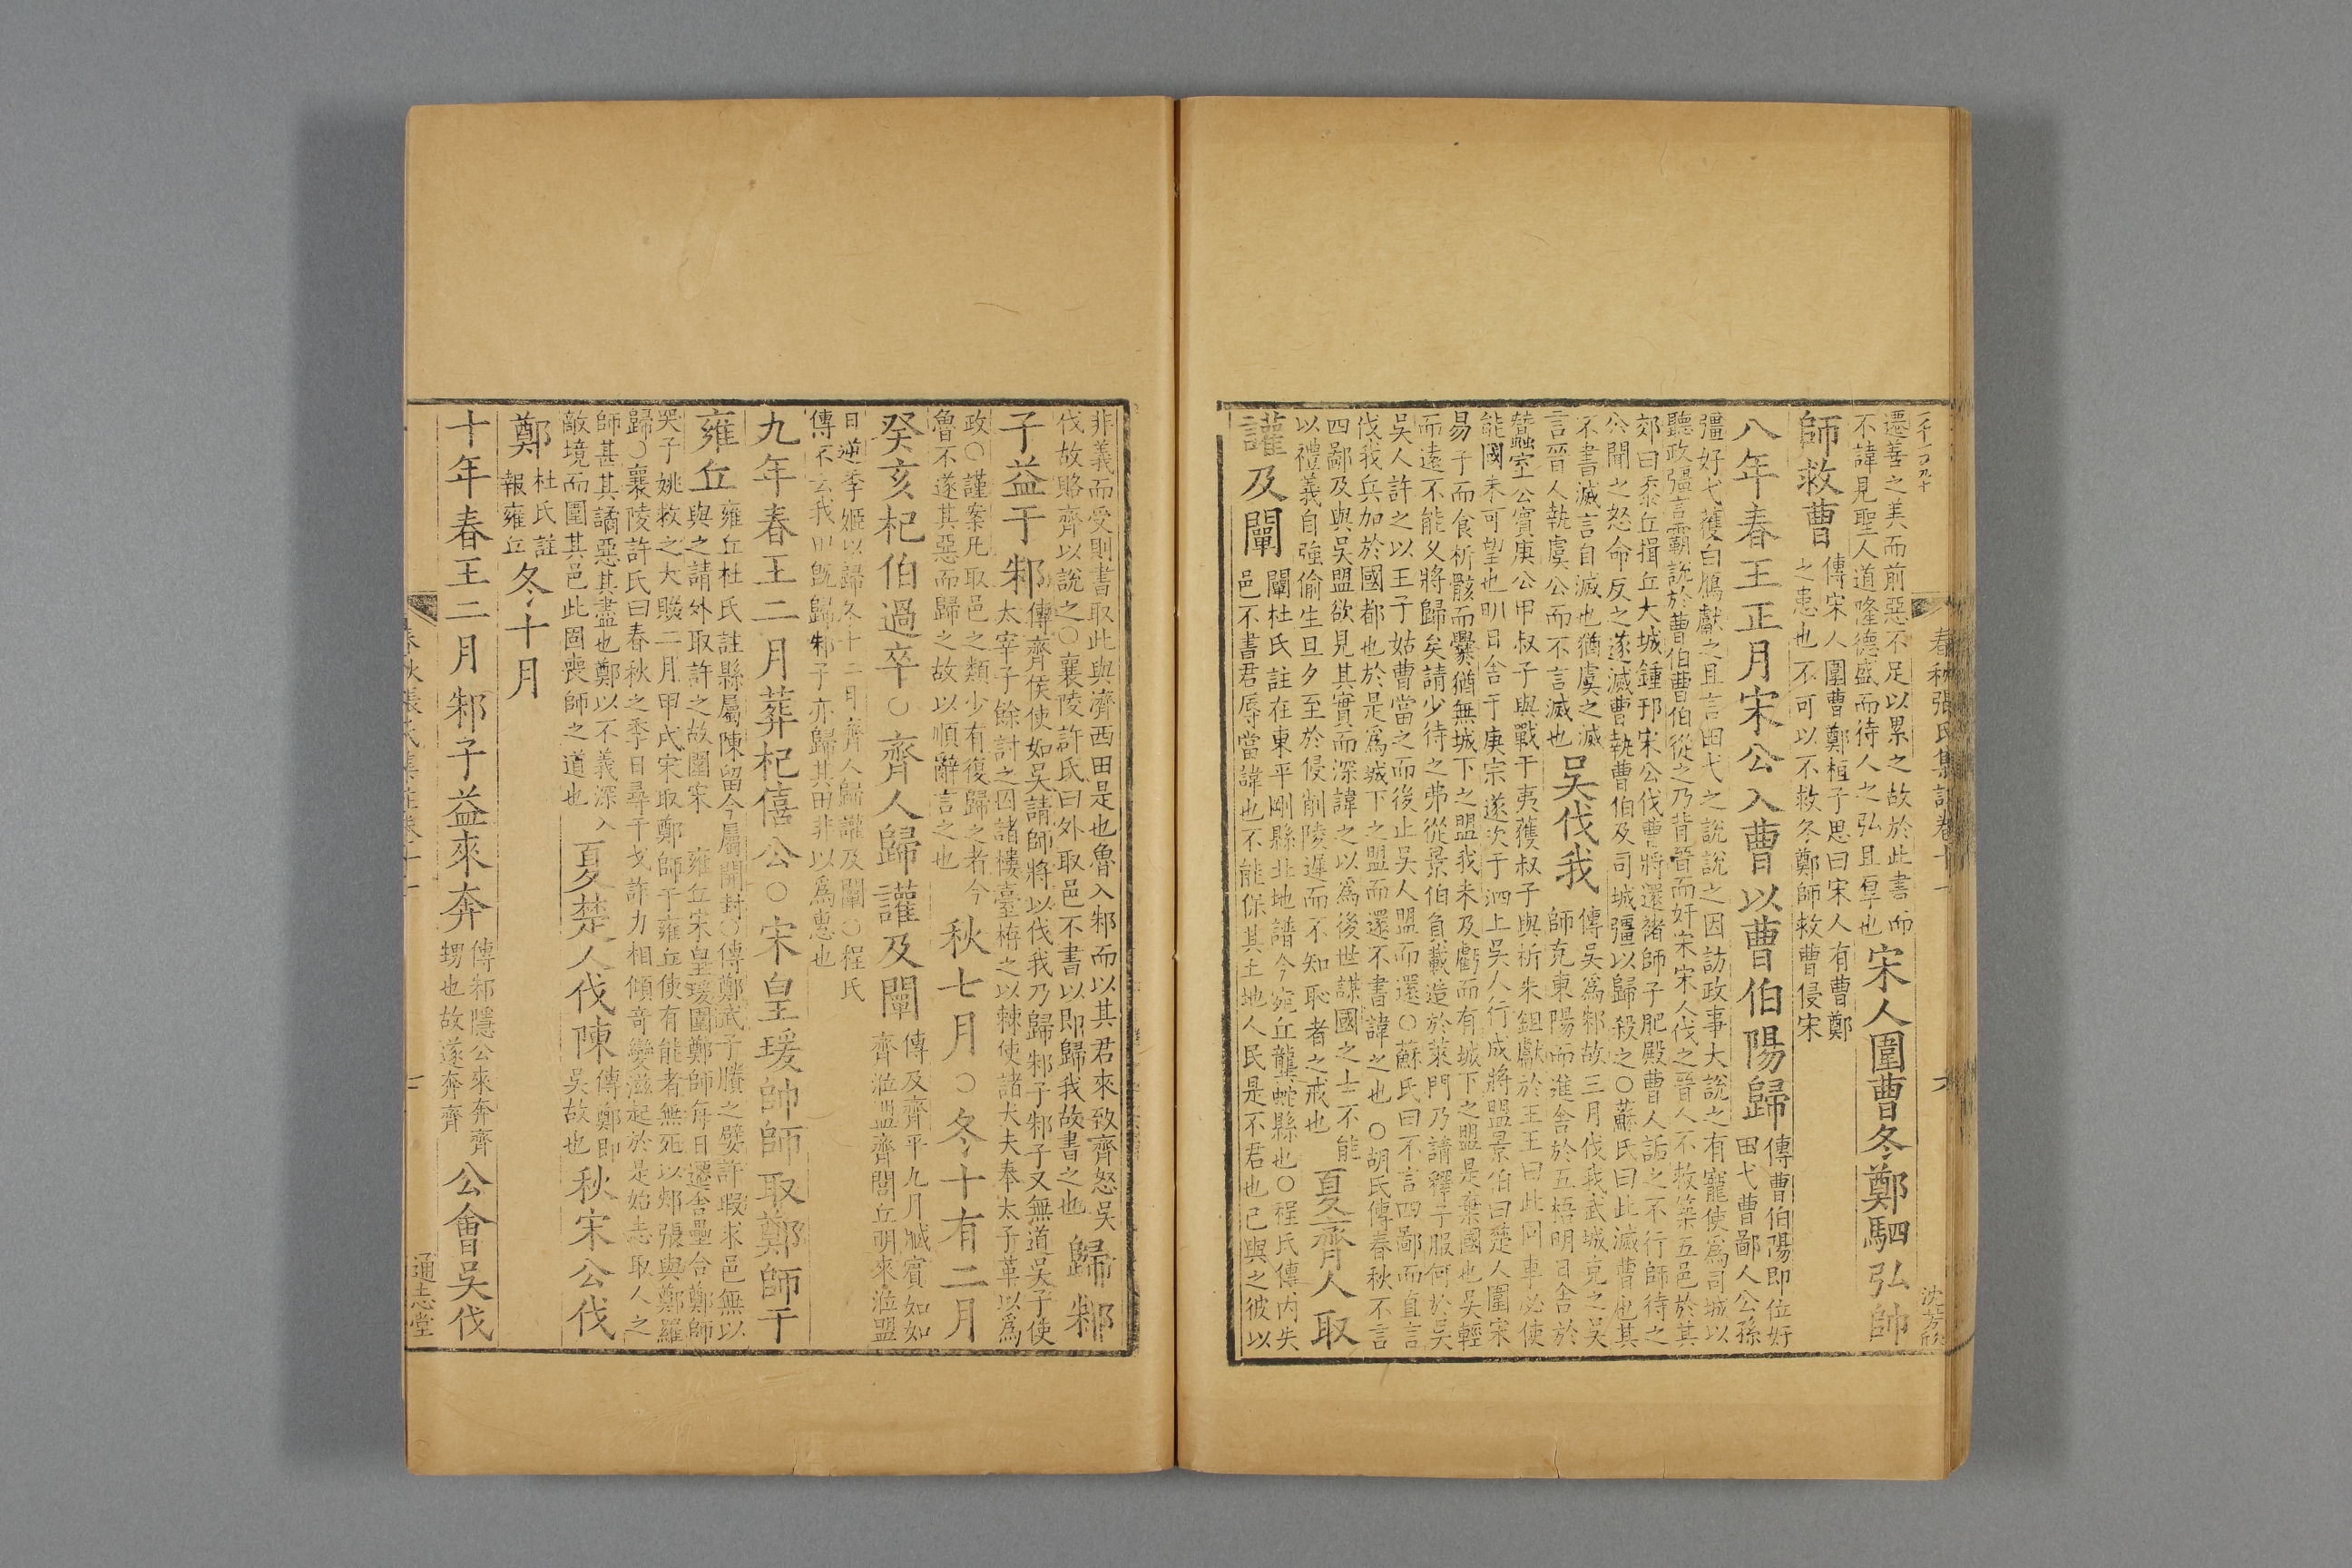 二千一百九十
春秋張氏集註卷十一
六
沈芳欣
遷善之美而前惡不足以累之故於此書而
不諱見聖人道隆德盛而待人之弘且厚也
宋人圍曹冬鄭駟弘帥
師救曹
傳宋人圍曹鄭桓子思曰宋人有曹鄭
之患也不可以不救冬鄭師救曹侵宋
八年春王正月宋公入曹以曹伯陽歸
傳曹伯陽即位好
田弋曹鄙人公孫
彊好弋獲白鴈獻之且言田弋之說說之因訪政事大說之有寵使爲司城以
聽政彊言霸說於曹伯曹伯從之乃背晉而奸宋宋人伐之晉人不救築五邑於其
郊曰黍丘揖丘大城鍾邘宋公伐曹將還褚師子肥殿曹人詬之不行師待之
公聞之怒命反之遂滅曹執曹伯及司城彊以歸殺之○蘇氏曰此滅曹也其
不書滅言自滅也猶虞之滅
言晉人執虞公而不言滅也
吳伐我
傳吳爲邾故三月伐我武城克之吳
師克東陽而進舍於五梧明日舍於
蠶室公賓庚公甲叔子與戰于夷獲叔子與析朱鉏獻於王王曰此同車必使
能國未可望也明日舍于庚宗遂次于泗上吳人行成將盟景伯曰楚人圍宋
易子而食析骸而爨猶無城下之盟我未及虧而有城下之盟是棄國也吳輕
而遠不能久將歸矣請少待之弗從景伯負載造於萊門乃請釋子服何於吳
吳人許之以王子姑曹當之而後止吳人盟而還○蘇氏曰不言四鄙而直言
伐我兵加於國都也於是爲城下之盟而還不書諱之也○胡氏傳春秋不言
四鄙及與吳盟欲見其實而深諱之以爲後世謀國之士不能
以禮義自強偷生旦夕至於侵削陵遲而不知恥者之戒也
夏齊人取
讙及闡
闡杜氏註在東平剛縣北地譜今丘龔縣也○程氏傳內失
邑不書君辱當諱也不能保其土地人民是不君也已與之彼以
非義而受則書取此與濟西田是也魯入邾而以其君來致齊怒吳
伐故賂齊以說之○襄陵許氏曰外取邑不書以即歸我故書之也
歸邾
子益于邾
傳齊侯使如吳請師將以伐我乃歸邾子邾子又無道吳子使
太宰子餘討之囚諸樓臺栫之以棘使諸大夫奉太子革以爲
政○謹案凡取邑之類少有復歸之者今
魯不遂其惡而歸之故以順辭言之也
秋七月○冬十有二月
癸亥杞伯過卒○齊人歸讙及闡
傳及齊平九月臧賓如如
齊涖盟齊閭丘明來涖盟
且逆季姬以歸冬十二月齊人歸讙及闡○程氏
傳不云我田旣歸邾子亦歸其田非以爲惠也
九年春王二月葬杞僖公○宋皇瑗帥師取鄭師于
雍丘
雍丘杜氏註縣屬陳留今屬開封○傳鄭武子賸之嬖許瑕求邑無以
與之請外取許之故圍宋雍丘宋皇瑗圍鄭師每日遷舍壘合鄭師
哭子姚救之大敗二月甲戌宋取鄭師于雍丘使有能者無死以郟張與鄭羅
歸○襄陵許氏曰春秋之季日尋干戈詐力相傾奇變滋起於是始志取人之
師甚其譎惡其盡也鄭以不義深入
敵境而圍其邑此固喪師之道也
夏楚人伐陳
傳鄭即
吳故也
秋宋公伐
鄭
杜氏註
報雍丘
冬十月
十年春王二月邾子益來奔
傳邾隱公來奔齊
甥也故遂奔齊
公會吳伐
春秋張氏集註卷十一
通志堂